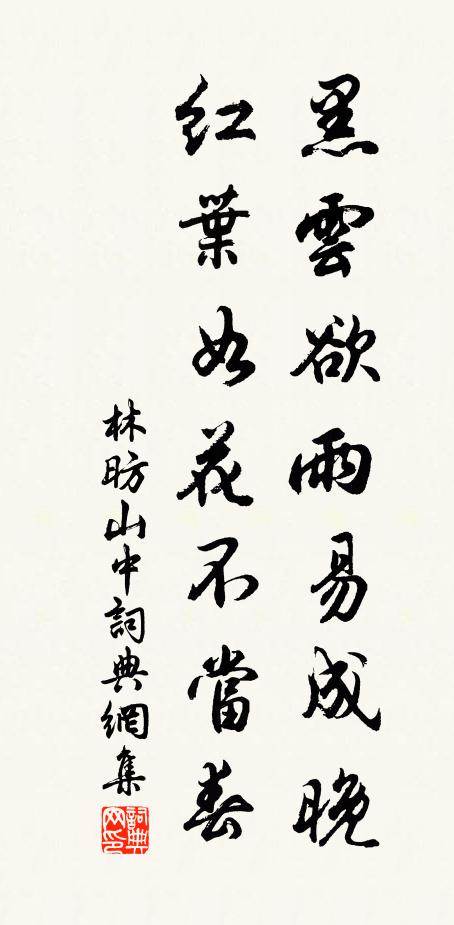 黑雲欲雨易成晚
紅葉如花不當春
林昉山中詞典網集
詞典網印